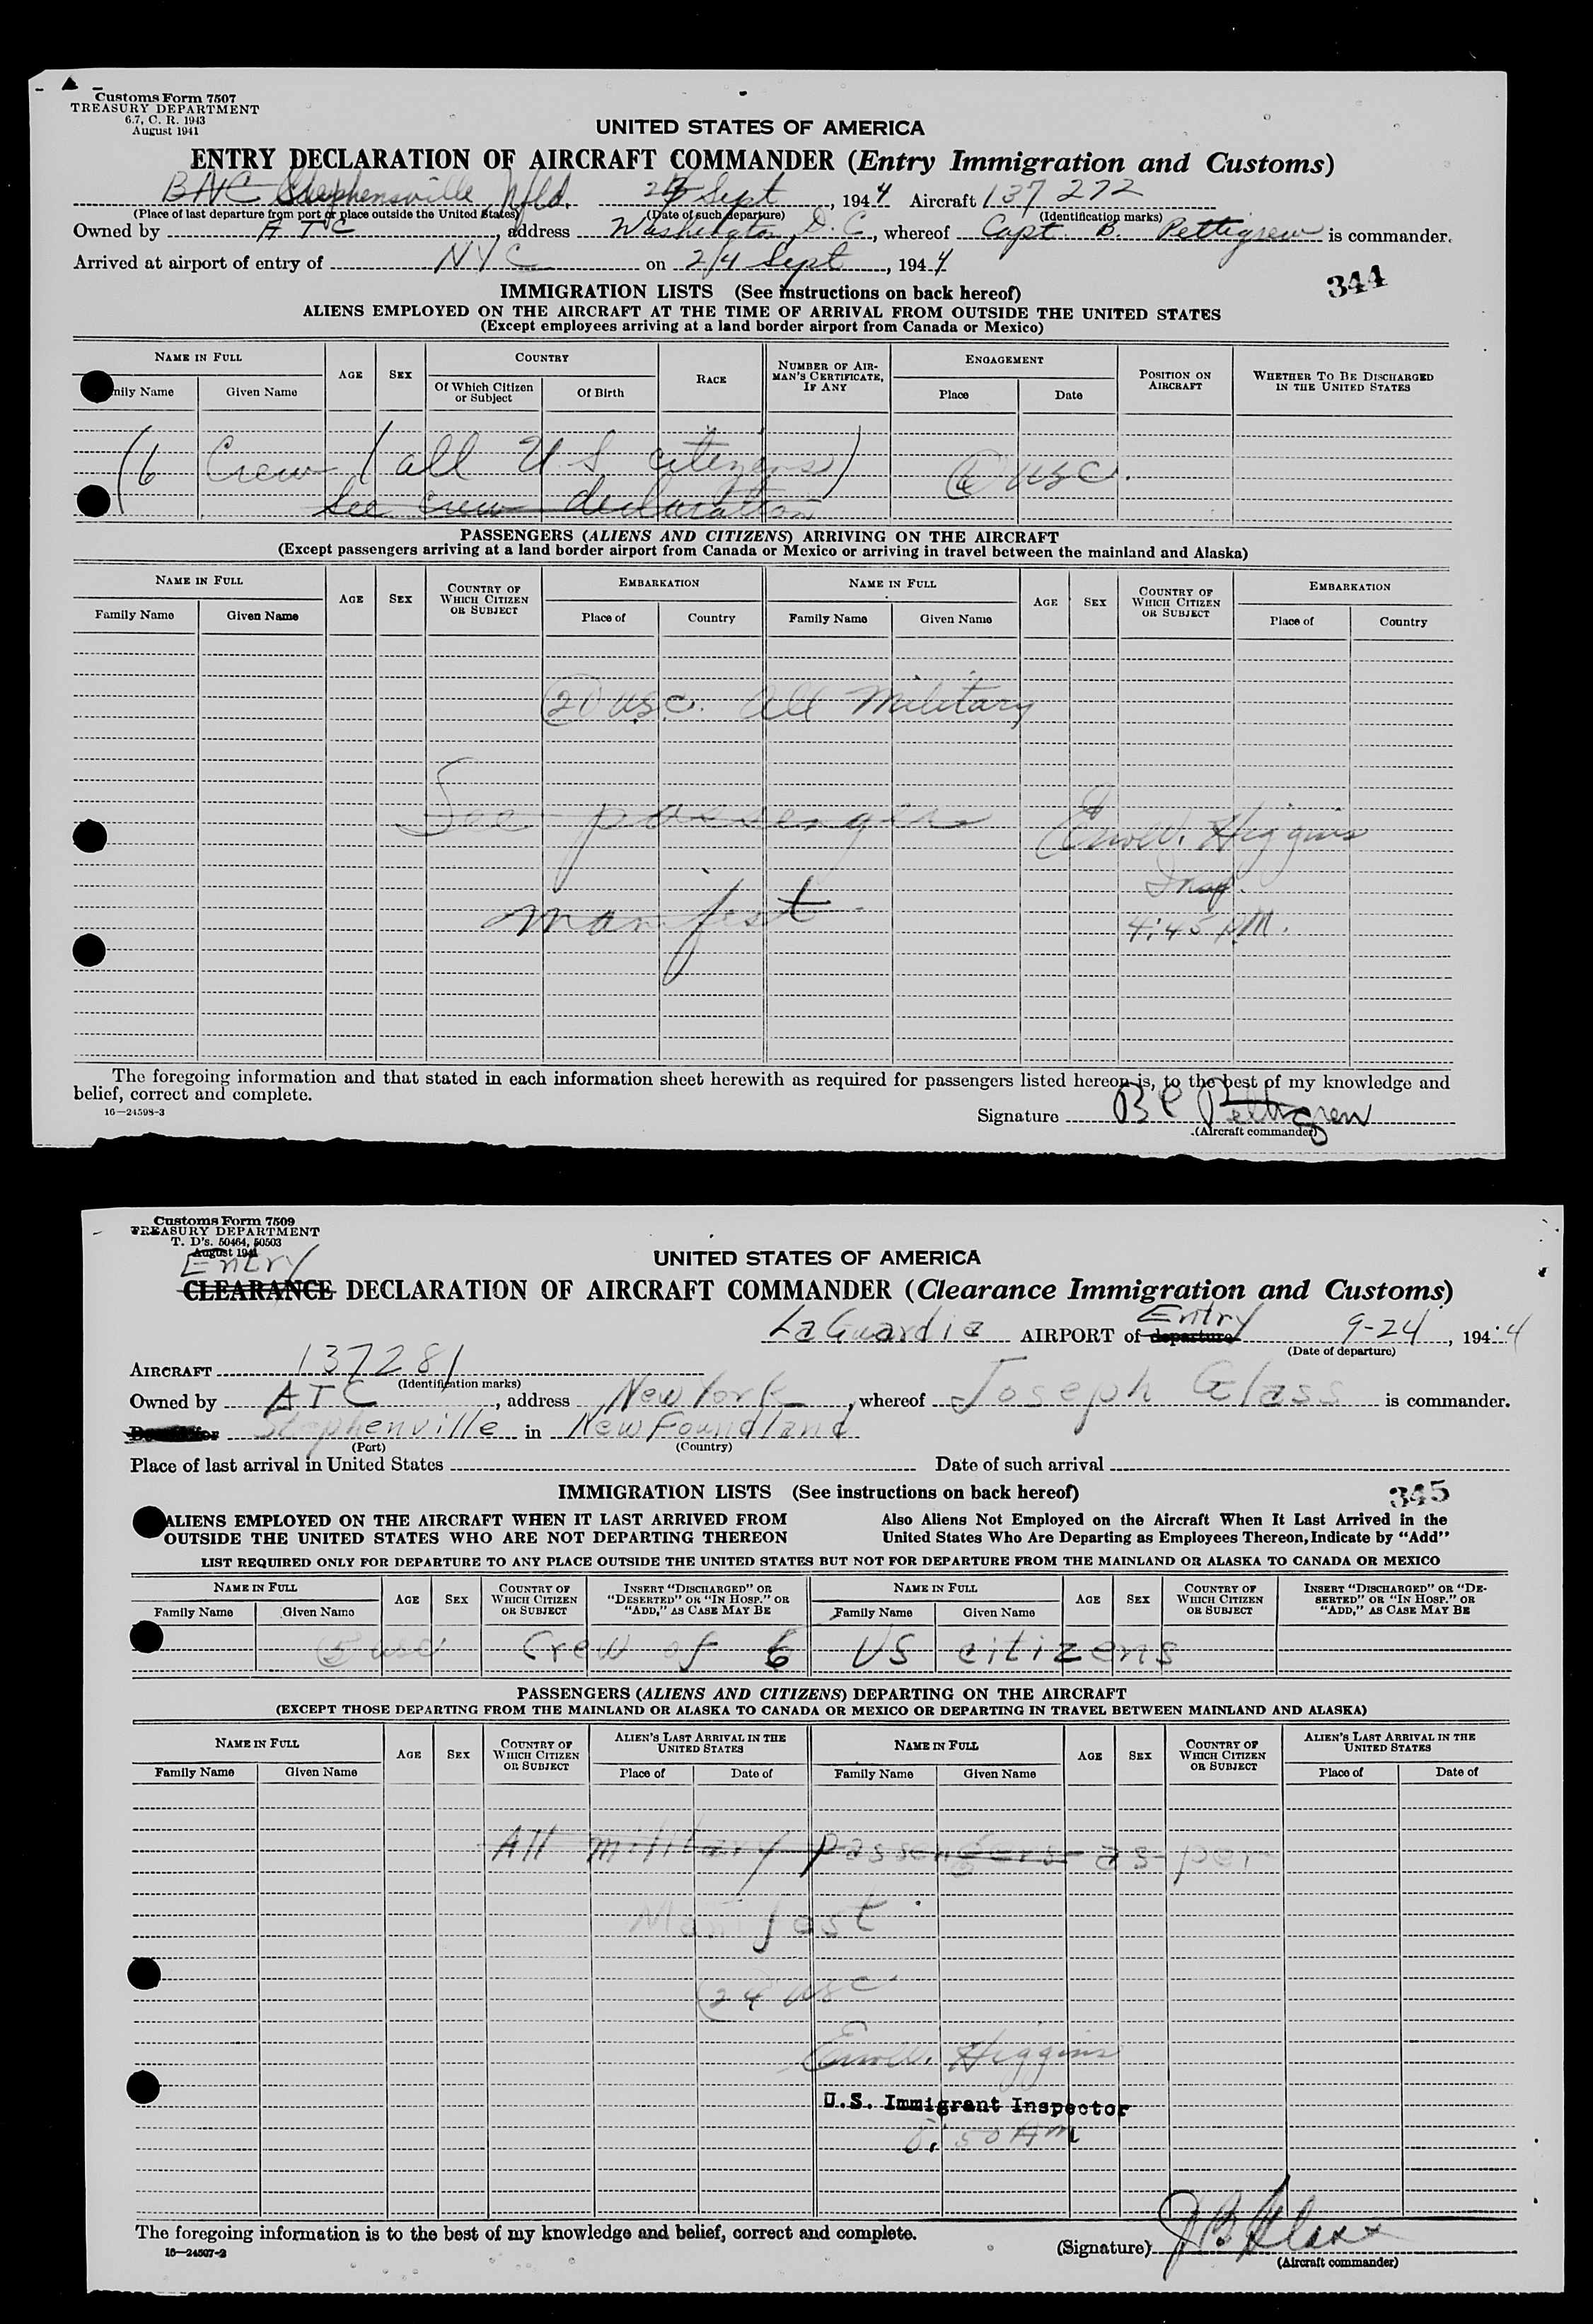 Customs Form 7507
TREASURY DEPARTMENT
6.7, C. R. 1943
August 1941
UNITED STATES OF AMERICA
ENTRY DECLARATION OF AIRCRAFT COMMANDER (Entry Immigration and Customs)
BNC Stephensville Nfld. Sept, 1944 Aircraft 137272
(Place of last departure from port or place outside the United States) (Date of such departure) (Identification marks)
Owned by ATC, address Washington, D. C, whereof Capt. B. Pettigrew is commander.
Arrived at airport of entry of NYC on 24 Sept, 1944
344
IMMIGRATION LISTS (See instructions on back hereof)
ALIENS EMPLOYED ON THE AIRCRAFT AT THE TIME OF ARRIVAL FROM OUTSIDE THE UNITED STATES
(Except employees arriving at a land border airport from Canada or Mexico)
NAME IN FULL AGE SEX COUNTRY RACE NUMBER OF AIRMAN'S CERTIFICATE, IF ANY ENGAGEMENT POSITION ON AIRCRAFT WHETHER TO BE DISCHARGED IN THE UNITED STATES
mily Name Given Name Of Which Citizen or Subject Of Birth Place Date
(6 Crew (all U S citizens) 6 USC.
See crew declaration
PASSENGERS (ALIENS AND CITIZENS) ARRIVING ON THE AIRCRAFT
(Except passengers arriving at a land border airport from Canada or Mexico or arriving in travel between the mainland and Alaska)
NAME IN FULL AGE SEX COUNTRY OF WHICH CITIZEN OR SUBJECT EMBARKATION NAME IN FULL AGE SEX COUNTRY OF WHICH CITIZEN OR SUBJECT EMBARKATION
Family Name Given Name Place of Country Family Name Given Name Place of Country
20 USC. All Military
See passenger
Higgins
Insp.
manifest
4:45 PM.
The foregoing information and that stated in each information sheet herewith as required for passengers listed hereon is, to the best of my knowledge and
belief, correct and complete.
16—24598-3
Signature B C Pettigrew
(Aircraft commander)
Customs Form 7509
TREASURY DEPARTMENT
T. D's. 50464, 50503
August 1941
Entry
CLEARANCE DECLARATION OF AIRCRAFT COMMANDER (Clearance Immigration and Customs)
LaGuardia AIRPORT of departure Entry 9-24, 1944
(Date of departure)
AIRCRAFT 137281
(Identification marks)
Owned by ATC, address New York, whereof Joseph Glass is commander.
Stephenville in NewFoundland
(Port) (Country)
Place of last arrival in United States Date of such arrival
IMMIGRATION LISTS (See instructions on back hereof)
345
ALIENS EMPLOYED ON THE AIRCRAFT WHEN IT LAST ARRIVED FROM
OUTSIDE THE UNITED STATES WHO ARE NOT DEPARTING THEREON
Also Aliens Not Employed on the Aircraft When It Last Arrived in the
United States Who Are Departing as Employees Thereon, Indicate by "Add"
LIST REQUIRED ONLY FOR DEPARTURE TO ANY PLACE OUTSIDE THE UNITED STATES BUT NOT FOR DEPARTURE FROM THE MAINLAND OR ALASKA TO CANADA OR MEXICO
NAME IN FULL AGE SEX COUNTRY OF WHICH CITIZEN OR SUBJECT INSERT "DISCHARGED" OR "DESERTED" OR "IN HOSP." OR "ADD," AS CASE MAY BE NAME IN FULL AGE SEX COUNTRY OF WHICH CITIZEN OR SUBJECT INSERT "DISCHARGED" OR "DESERTED" OR "IN HOSP." OR "ADD," AS CASE MAY BE
Family Name Given Name Family Name Given Name
usc Crew of 6 US citizens
PASSENGERS (ALIENS AND CITIZENS) DEPARTING ON THE AIRCRAFT
(EXCEPT THOSE DEPARTING FROM THE MAINLAND OR ALASKA TO CANADA OR MEXICO OR DEPARTING IN TRAVEL BETWEEN MAINLAND AND ALASKA)
NAME IN FULL AGE SEX COUNTRY OF WHICH CITIZEN OR SUBJECT ALIEN'S LAST ARRIVAL IN THE UNITED STATES NAME IN FULL AGE SEX COUNTRY OF WHICH CITIZEN OR SUBJECT ALIEN'S LAST ARRIVAL IN THE UNITED STATES
Family Name Given Name Place of Date of Family Name Given Name Place of Date of
All military passengers as per
Manifest
24 usc
Higgins
U.S. Immigrant Inspector
50 AM
The foregoing information is to the best of my knowledge and belief, correct and complete.
16—24507-2
(Signature) J B Glass
(Aircraft commander)